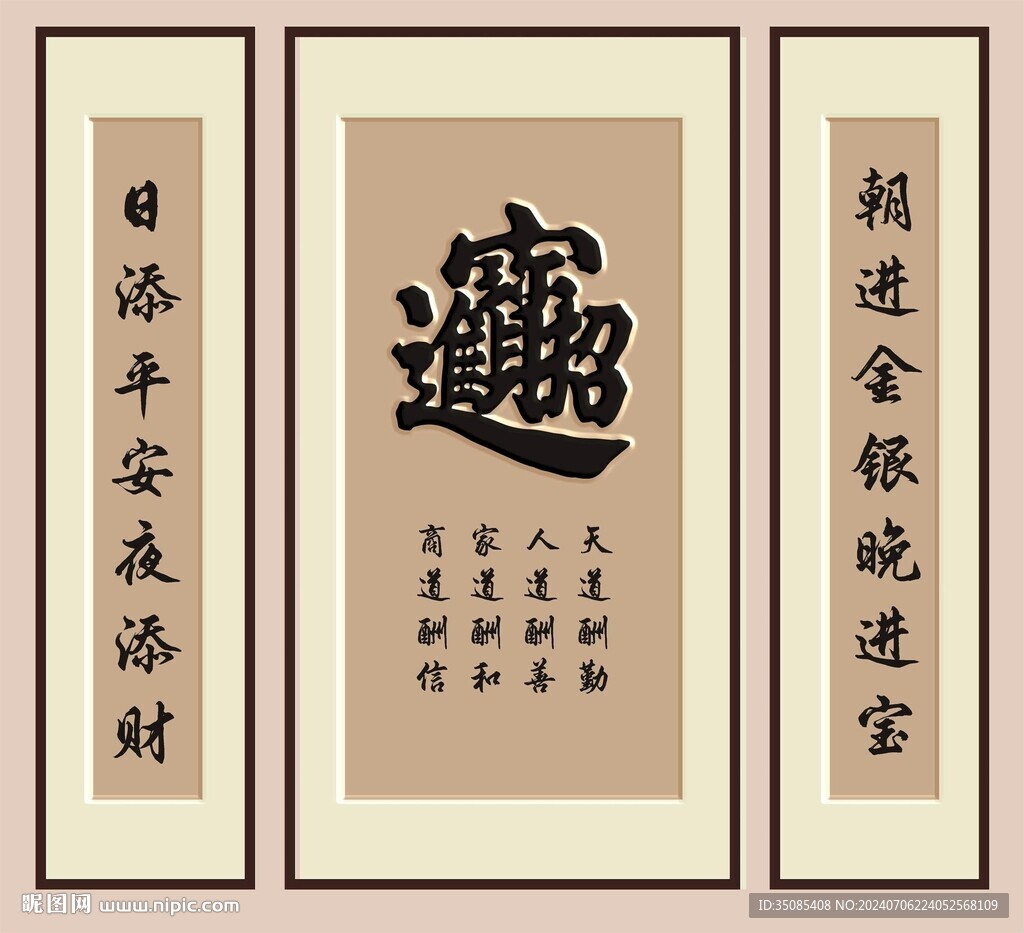 朝进金银晚进宝
招财进宝
天道酬勤
人道酬善
家道酬和
商道酬信
日添平安夜添财
昵图网 www.nipic.com
ID:35085408 NO:20240706224052568109